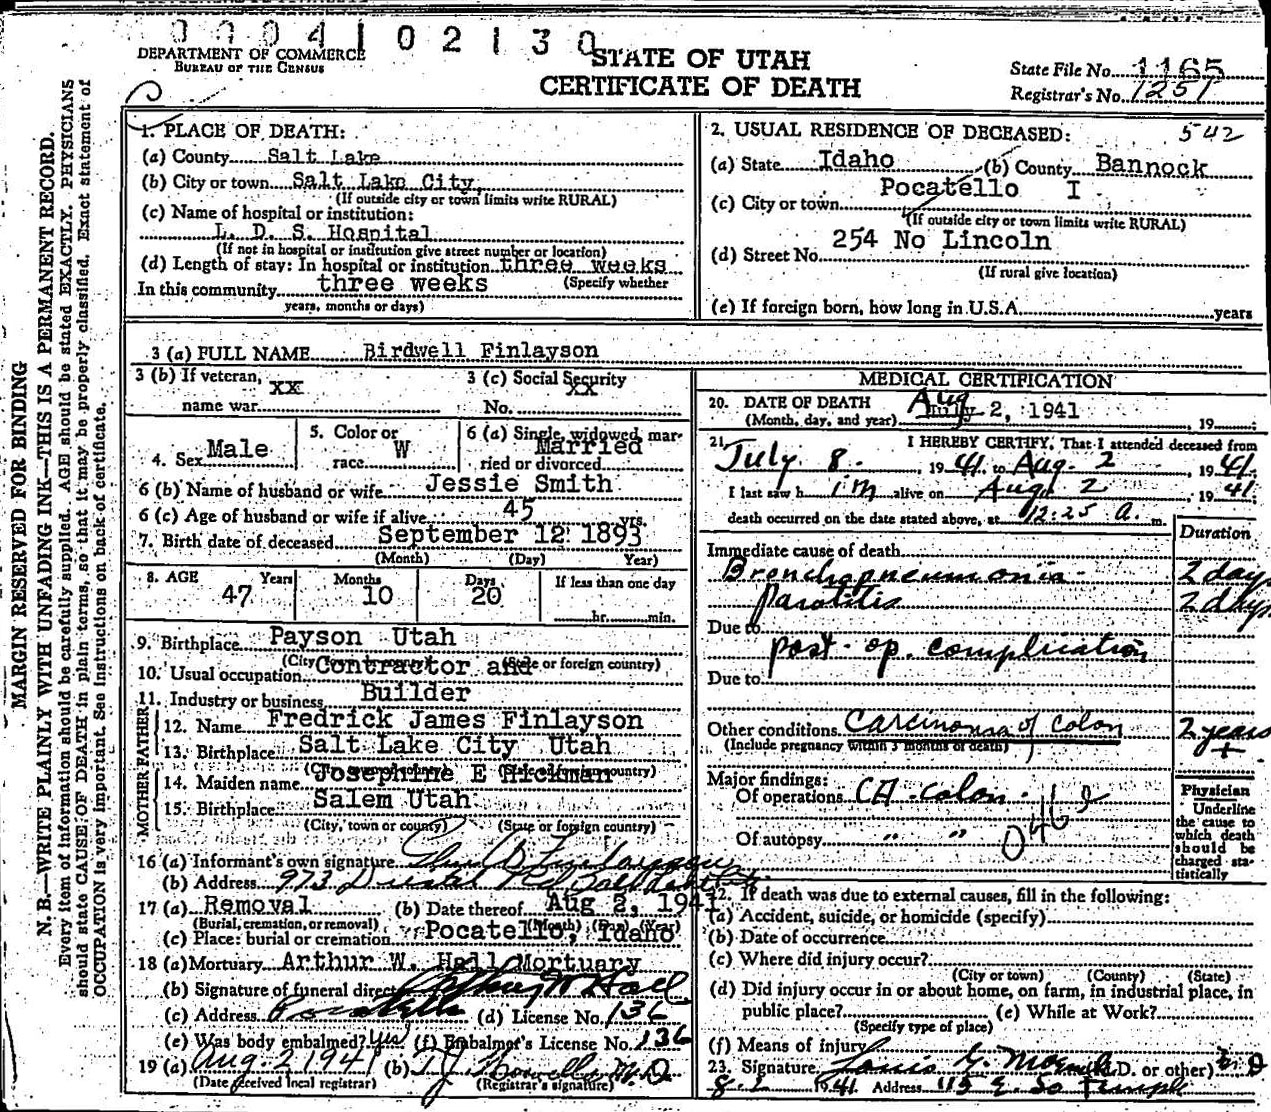 0004102130
DEPARTMENT OF COMMERCE
BUREAU OF THE CENSUS
STATE OF UTAH
CERTIFICATE OF DEATH
State File No. 1165
Registrar's No. 1251
MARGIN RESERVED FOR BINDING
N. B.—WRITE PLAINLY WITH UNFADING INK—THIS IS A PERMANENT RECORD.
Every item of information should be carefully supplied. AGE should be stated EXACTLY. PHYSICIANS
should state CAUSE OF DEATH in plain terms, so that it may be properly classified. Exact statement of
OCCUPATION is very important. See instructions on back of certificate.
1. PLACE OF DEATH:
(a) County Salt Lake
(b) City or town Salt Lake City,
(If outside city or town limits write RURAL)
(c) Name of hospital or institution:
L. D. S. Hospital
(If not in hospital or institution give street number or location)
(d) Length of stay: In hospital or institution three weeks
In this community three weeks (Specify whether
years, months or days)
2. USUAL RESIDENCE OF DECEASED: 542
(a) State Idaho (b) County Bannock
(c) City or town Pocatello I
(If outside city or town limits write RURAL)
(d) Street No. 254 No Lincoln
(If rural give location)
(e) If foreign born, how long in U.S.A. years
3 (a) FULL NAME Birdwell Finlayson
3 (b) If veteran, name war xx
3 (c) Social Security No. xx
4. Sex Male
5. Color or race W
6 (a) Single, widowed, married or divorced Married
6 (b) Name of husband or wife Jessie Smith
6 (c) Age of husband or wife if alive 45 yrs.
7. Birth date of deceased September 12 1893
(Month) (Day) Year)
8. AGE Years 47 Months 10 Days 20 If less than one day
hr. min.
9. Birthplace Payson Utah
(City (State or foreign country)
10. Usual occupation Contractor and
11. Industry or business Builder
FATHER
12. Name Fredrick James Finlayson
13. Birthplace Salt Lake City Utah
MOTHER
14. Maiden name Josephine E Hickman
15. Birthplace Salem Utah
(City, town or county) (State or foreign country)
16 (a) Informant's own signature
(b) Address 973
17 (a) Removal (b) Date thereof Aug 2, 1941
(Burial, cremation, or removal) (Month) (Day) (Year)
(c) Place: burial or cremation Pocatello, Idaho
18 (a) Mortuary Arthur W. Hall Mortuary
(b) Signature of funeral director Arthur W Hall
(c) Address Pocatello (d) License No. 136
(e) Was body embalmed? Yes (f) Embalmer's License No. 136
19 (a) Aug. 2 1941 (b) T. J. Howells M. D
(Date received local registrar) (Registrar's signature)
MEDICAL CERTIFICATION
20. DATE OF DEATH Aug July 2, 1941
(Month, day, and year) 19
21. I HEREBY CERTIFY, That I attended deceased from
July 8. , 1941, to Aug. 2 , 1941.
I last saw him alive on Aug. 2 , 1941
death occurred on the date stated above, at 12:25 a. m.
Duration
Immediate cause of death
Bronchopneumonia 2 days
Parotitis 2 days
Due to
post-op. complication
Due to
Other conditions Carcinoma of Colon 2 years +
(Include pregnancy within 3 months of death)
Major findings:
Of operations CA colon.
Of autopsy " "
Physician
Underline
the cause to
which death
should be
charged sta-
tistically
22. If death was due to external causes, fill in the following:
(a) Accident, suicide, or homicide (specify)
(b) Date of occurrence
(c) Where did injury occur?
(City or town) (County) (State)
(d) Did injury occur in or about home, on farm, in industrial place, in
public place? (e) While at Work?
(Specify type of place)
(f) Means of injury
23. Signature Louis G. (M.D. or other) M D
1941 Address 115 E. So Temple